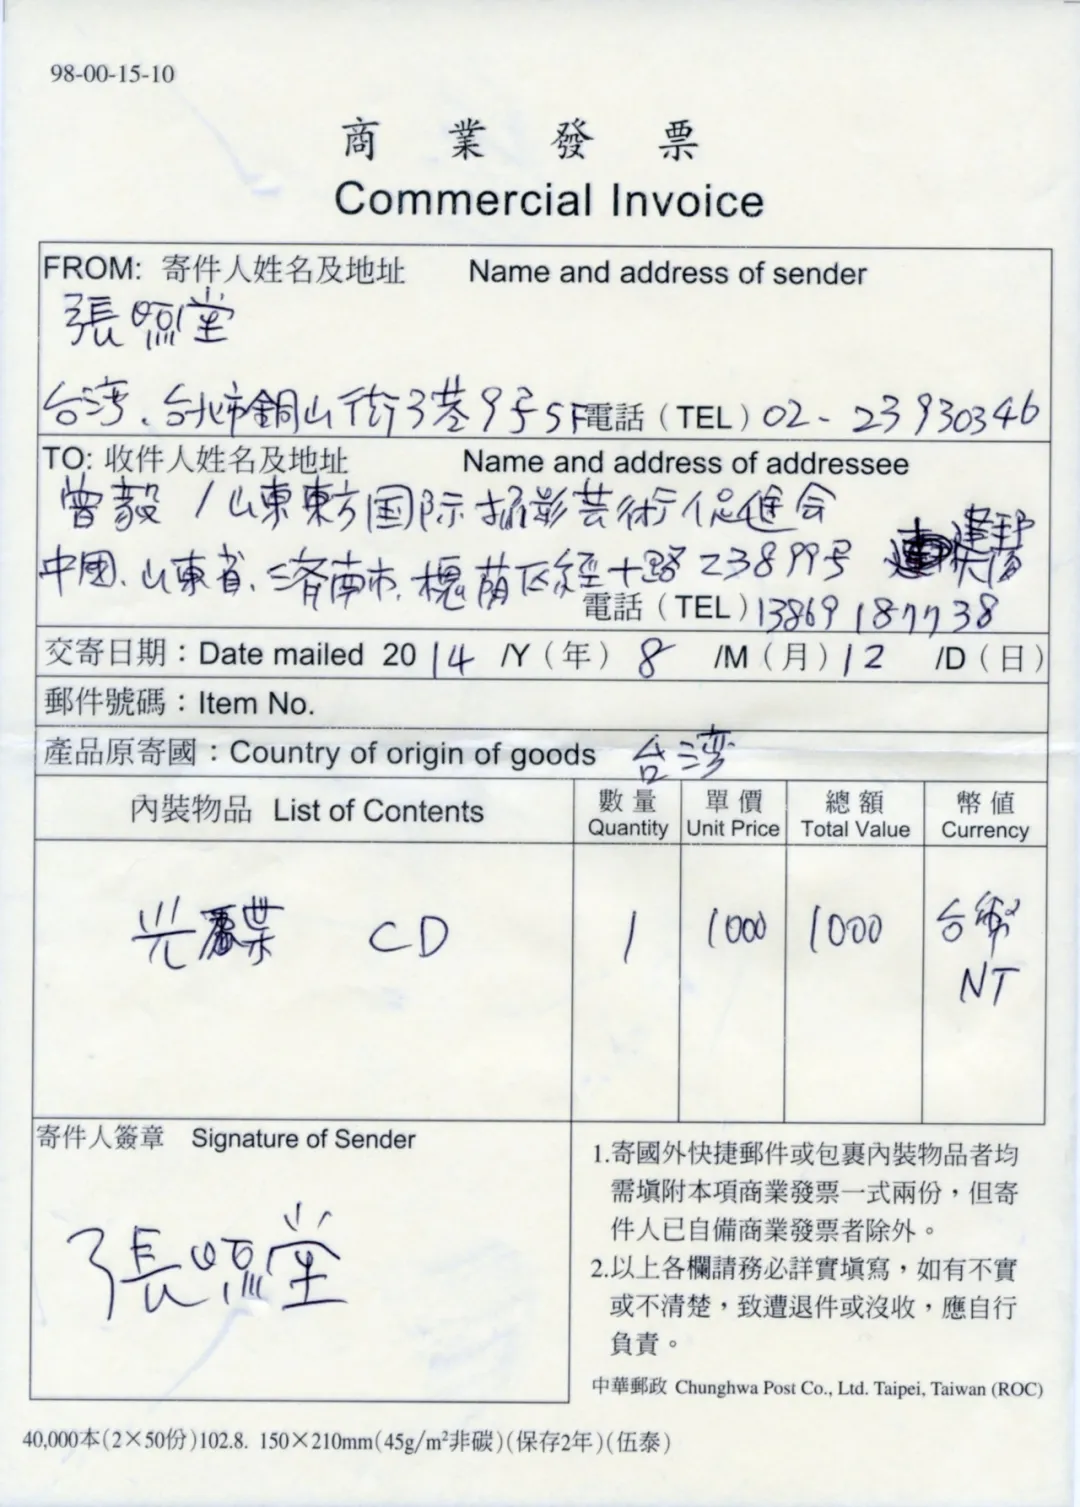 98-00-15-10
商業發票
Commercial Invoice
FROM: 寄件人姓名及地址 Name and address of sender
張照堂
台湾、台北市銅山街3巷9号5F 電話（TEL）02-23930346
TO: 收件人姓名及地址 Name and address of addressee
曾毅 / 山東東方国际攝影芸術促進会
中國、山東省、濟南市、槐荫区經十路23899号
電話（TEL）13869187738
交寄日期：Date mailed 2014 /Y（年）8 /M（月）12 /D（日）
郵件號碼：Item No.
產品原寄國：Country of origin of goods 台湾
內裝物品 List of Contents 數量 Quantity 單價 Unit Price 總額 Total Value 幣值 Currency
光碟 CD 1 1000 1000 台幣
NT
寄件人簽章 Signature of Sender
張照堂
1.寄國外快捷郵件或包裹內裝物品者均
需填附本項商業發票一式兩份，但寄
件人已自備商業發票者除外。
2.以上各欄請務必詳實填寫，如有不實
或不清楚，致遭退件或沒收，應自行
負責。
中華郵政 Chunghwa Post Co., Ltd. Taipei, Taiwan (ROC)
40,000本(2×50份)102.8. 150×210mm(45g/m²非碳)(保存2年)(伍泰)